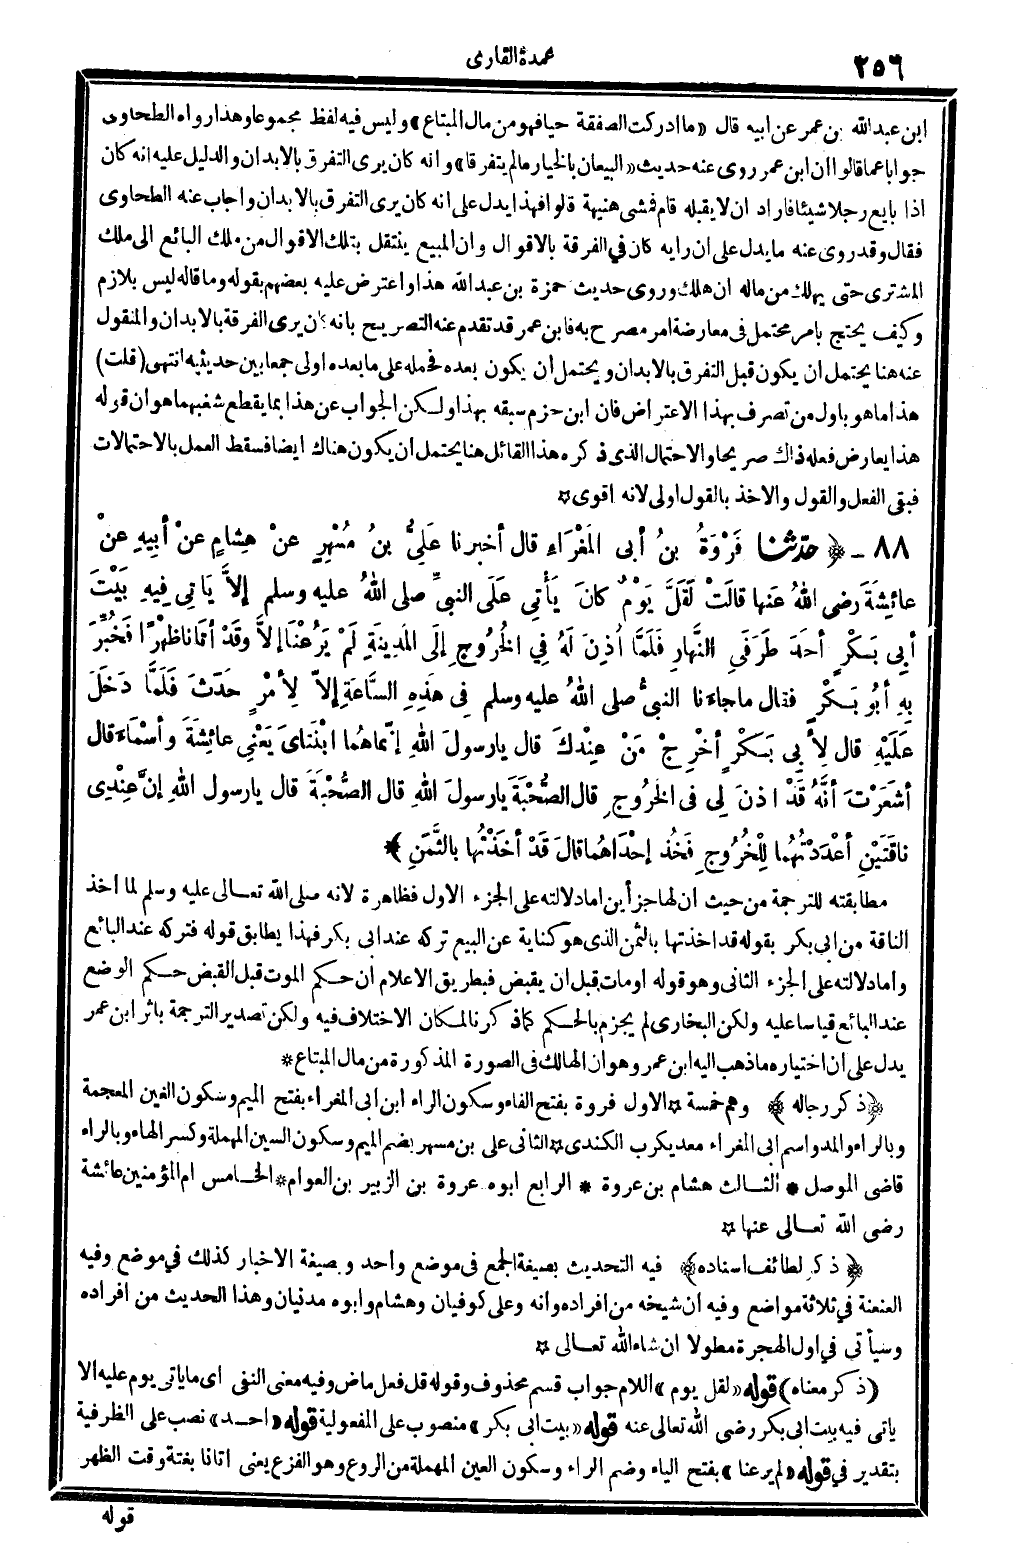 ٢٥٦
عمدة القارى
ابن عبدالله بن عمر عن ابيه قال «ما ادركت الصفقة حيا فهو من مال المبتاع» وليس فيه لفظ مجموعا وهذا رواه الطحاوى
جوابا عما قالوا ان ابن عمر روى عنه حديث «البيعان بالخيار مالم يتفرقا» وانه كان يرى التفرق بالابدان والدليل عليه انه كان
اذا بايع رجلا شيئا فاراد ان لا يقيله قام فمشى هنيهة قالوا فهذا يدل على انه كان يرى التفرق بالابدان واجاب عنه الطحاوى
فقال وقد روى عنه ما يدل على ان رايه كان في الفرقة بالاقوال وان المبيع ينتقل بتلك الاقوال من ملك البائع الى ملك
المشترى حتى يهلك من ماله ان هلك وروى حديث حمزة بن عبدالله هذا واعترض عليه بعضهم بقوله وما قاله ليس بلازم
وكيف يحتج بامر محتمل فى معارضة امر مصرح به فابن عمر قد تقدم عنه التصريح بانه كان يرى الفرقة بالابدان والمنقول
عنه هنا يحتمل ان يكون قبل التفرق بالابدان ويحتمل ان يكون بعده فحمله على ما بعده اولى جمعا بين حديثيه انتهى (قلت)
هذا ما هو باول من تصرف بهذا الاعتراض فان ابن حزم سبقه بهذا ولكن الجواب عن هذا بما يقطع شغبهما هو ان قوله
هذا يعارض فعله ذاك صريحا والاحتمال الذى ذكره هذا القائل هنا يحتمل ان يكون هناك ايضا فسقط العمل بالاحتمالات
فبقى الفعل والقول والاخذ بالقول اولى لانه اقوى ✩
٨٨ - ﴿ حدّثنا فَرْوَةُ بنُ أبى المَغْرَاءِ قال أخبرنا علىُّ بنُ مُسْهِرٍ عنْ هِشامٍ عنْ أبِيهِ عنْ
عائِشَةَ رضى اللهُ عنها قالَتْ لَقَلَّ يَوْمٌ كانَ يَأْتِي عَلَى النبىِّ صلى اللهُ عليه وسلم إلاَّ يَاتِي فِيهِ بَيْتَ
أبِي بَكْرٍ أحَدَ طَرَفَىِ النَّهارِ فَلَمَّا أُذِنَ لَهُ فِي الخُرُوجِ إلَى المَدِينَةِ لَمْ يَرُعْنَا إلاَّ وقَدْ أتانا ظُهْرًا فَخُبِّرَ
بِهِ أَبُو بَكْرٍ فقال ماجاءنا النبىُّ صلى اللهُ عليه وسلم فِى هَذِهِ السَّاعَةِ إلاّ لِأمْرٍ حدَثَ فَلَمَّا دَخَلَ
عَلَيْهِ قال لأبِي بَكْرٍ أخْرِجْ مَنْ عِنْدكَ قال يارسولَ اللهِ إنّماهُما ابْنَتَاىَ يَعْنِي عائِشَةَ وأسْمَاءَ قال
أشَعَرْتَ أنَّهُ قَدْ اذنَ لِي فى الخرُوجِ قال الصُّحْبَةَ يارسولَ اللهِ قال الصُّحْبَةَ قال يارسول اللهِ إنَّ عِنْدِى
ناقَتَيْنِ أعْدَدْتُهُما لِلْخُرُوجِ فَخُذْ إحْدَاهُما قالَ قَدْ أخَذْتُها بالثَّمَنِ ﴾
مطابقته للترجمة من حيث ان لها جزأين اما دلالته على الجزء الاول فظاهرة لانه صلى الله تعالى عليه وسلم لما اخذ
الناقة من ابى بكر بقوله قد اخذتها بالثمن الذى هو كناية عن البيع تركه عند ابى بكر فهذا يطابق قوله فتركه عند البائع
واما دلالته على الجزء الثانى وهو قوله او مات قبل ان يقبض فبطريق الاعلام ان حكم الموت قبل القبض حكم الوضع
عند البائع قياسا عليه ولكن البخارى لم يجزم بالحكم كما ذكرنا لمكان الاختلاف فيه ولكن تصدير الترجمة باثر ابن عمر
يدل على ان اختياره ما ذهب اليه ابن عمر وهو ان الهالك فى الصورة المذكورة من مال المبتاع *
﴿ذكر رجاله﴾ وهم خمسة ✩ الاول فروة بفتح الفاء وسكون الراء ابن ابى المغراء بفتح الميم وسكون الغين المعجمة
وبالراء والمد واسم ابى المغراء معديكرب الكندى ✩ الثانى على بن مسهر بضم الميم وسكون السين المهملة وكسر الهاء وبالراء
قاضى الموصل * الثالث هشام بن عروة * الرابع ابوه عروة بن الزبير بن العوام * الخامس ام المؤمنين عائشة
رضى الله تعالى عنها ✩
﴿ذكر لطائف اسناده﴾ فيه التحديث بصيغة الجمع فى موضع واحد وبصيغة الاخبار كذلك في موضع وفيه
العنعنة في ثلاثة مواضع وفيه ان شيخه من افراده وانه وعلى كوفيان وهشام وابوه مدنيان وهذا الحديث من افراده
وسيأتى في اول الهجرة مطولا ان شاء الله تعالى ✩
(ذكر معناه) قوله «لقل يوم» اللام جواب قسم محذوف وقوله قل فعل ماض وفيه معنى النفى اى ما ياتى يوم عليه الا
ياتى فيه بيت ابى بكر رضى الله تعالى عنه قوله «بيت ابى بكر» منصوب على المفعولية قوله «احد» نصب على الظرفية
بتقدير في قوله «لم يرعنا» بفتح الياء وضم الراء وسكون العين المهملة من الروع وهو الفزع يعنى اتانا بغتة وقت الظهر
قوله